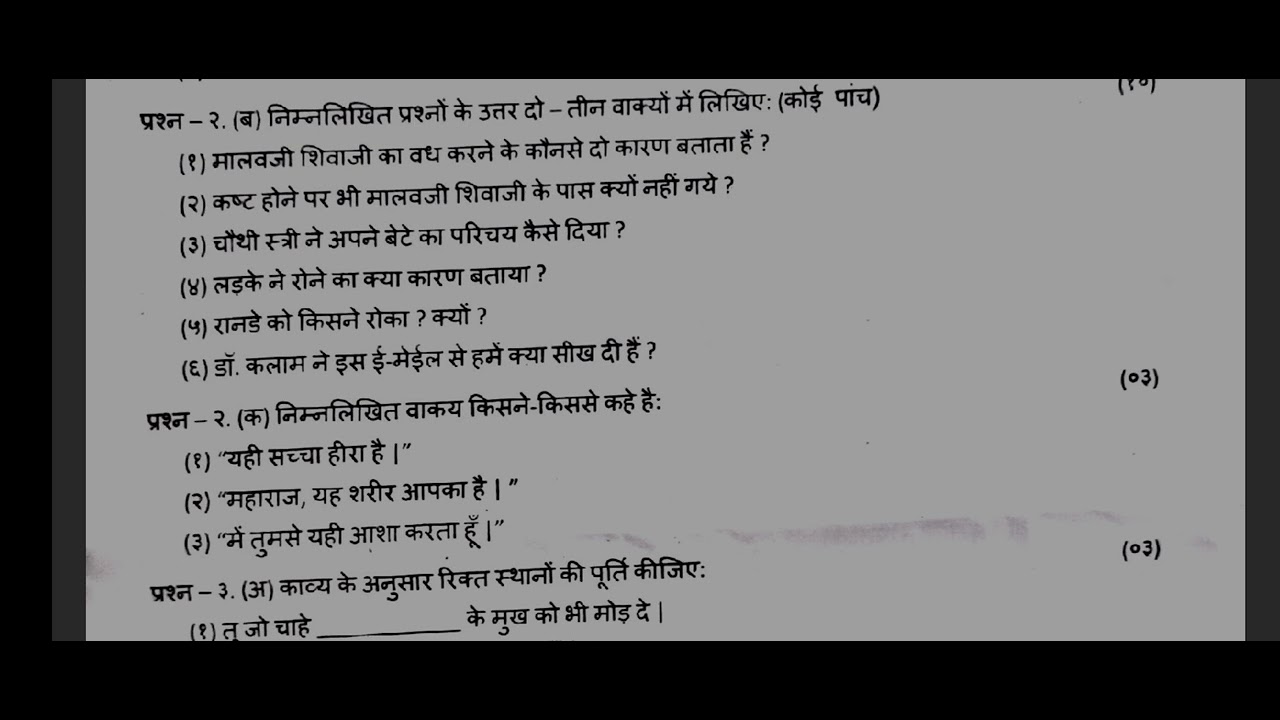 (१०)
प्रश्न – २. (ब) निम्नलिखित प्रश्नों के उत्तर दो – तीन वाक्यों में लिखिए: (कोई पांच)
(१) मालवजी शिवाजी का वध करने के कौनसे दो कारण बताता हैं ?
(२) कष्ट होने पर भी मालवजी शिवाजी के पास क्यों नहीं गये ?
(३) चौथी स्त्री ने अपने बेटे का परिचय कैसे दिया ?
(४) लड़के ने रोने का क्या कारण बताया ?
(५) रानडे को किसने रोका ? क्यों ?
(६) डॉ. कलाम ने इस ई-मेईल से हमें क्या सीख दी हैं ?
प्रश्न – २. (क) निम्नलिखित वाकय किसने-किससे कहे है: (०३)
(१) “यही सच्चा हीरा है |”
(२) “महाराज, यह शरीर आपका है | ”
(३) “में तुमसे यही आशा करता हूँ |”
प्रश्न – ३. (अ) काव्य के अनुसार रिक्त स्थानों की पूर्ति कीजिए: (०३)
(१) तू जो चाहे ____________ के मुख को भी मोड़ दे |